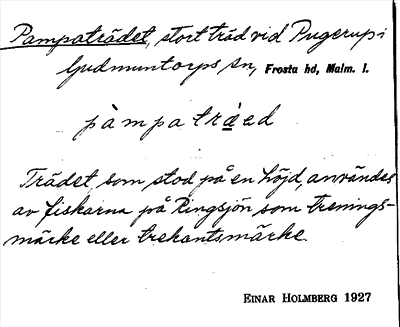 Pampaträdet, stort träd vid Pugerup i
Gudmuntorps sn, Frosta hd, Malm. l.
pàmpatráed
Trädet, som stod på en höjd, användes
av fiskarna på Ringsjön som trenings-
märke eller trekantsmärke.
EINAR HOLMBERG 1927